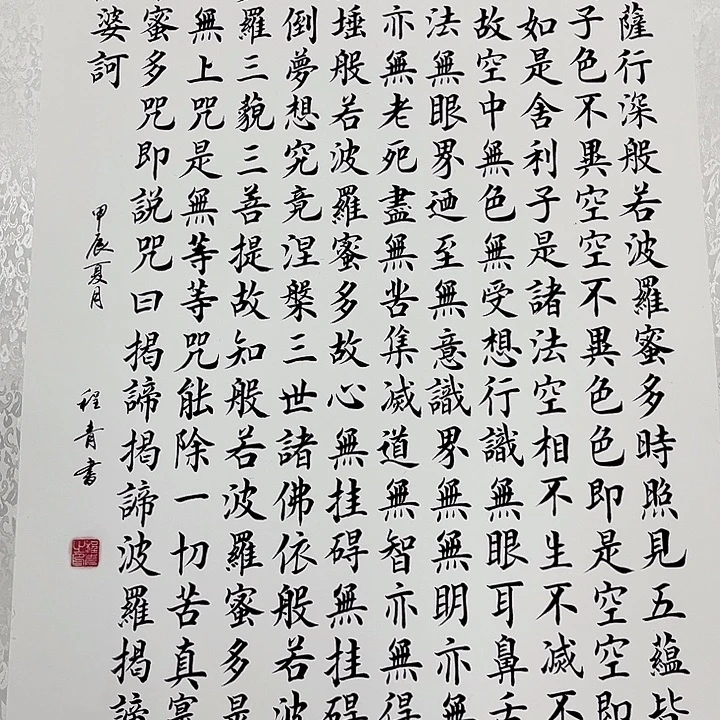 薩行深般若波羅蜜多時照見五蘊皆
子色不異空空不異色色即是空空即
如是舍利子是諸法空相不生不滅不
故空中無色無受想行識無眼耳鼻舌
法無眼界迺至無意識界無無明亦無
亦無老死盡無苦集滅道無智亦無得
埵般若波羅蜜多故心無挂碍無挂碍
倒夢想究竟涅槃三世諸佛依般若波
羅三藐三菩提故知般若波羅蜜多是
無上咒是無等等咒能除一切苦真實
蜜多咒即説咒曰揭諦揭諦波羅揭諦
婆訶
甲辰夏月
程青書